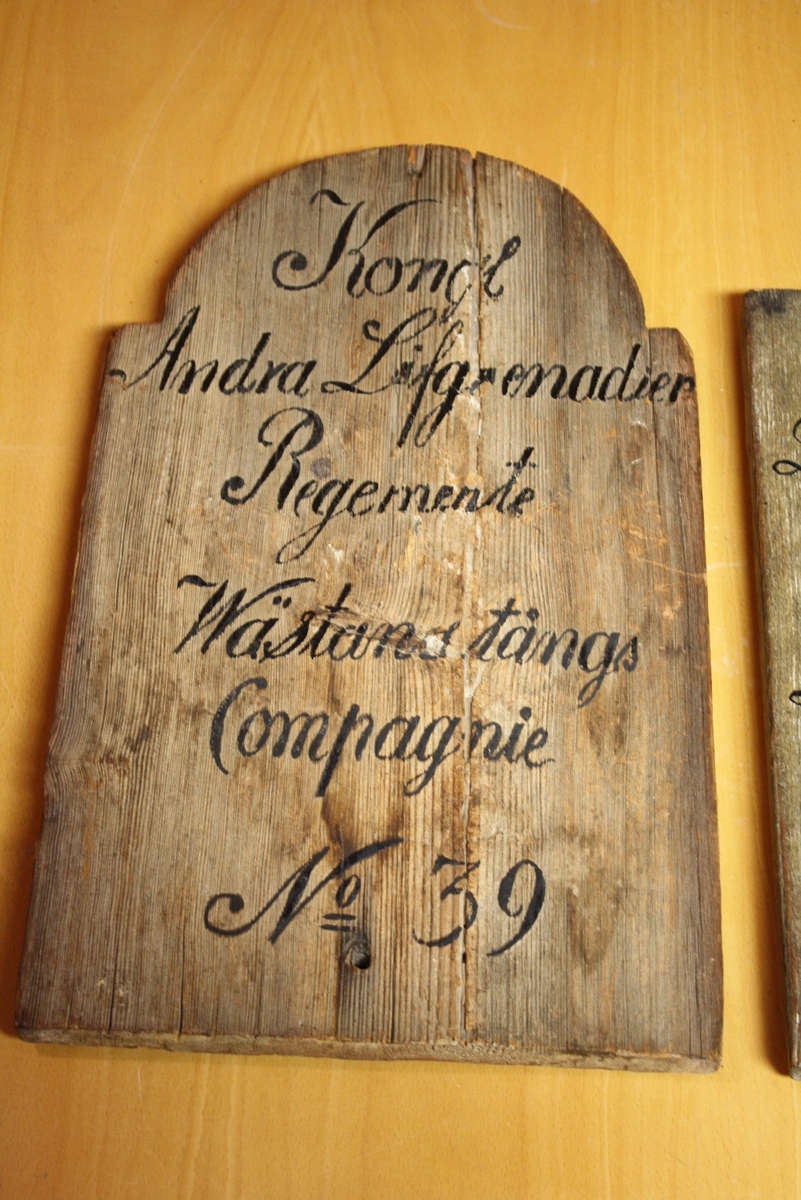 Kongl
Andra Lifgrenadier
Regemente
Wästanstångs
Compagnie
No 39